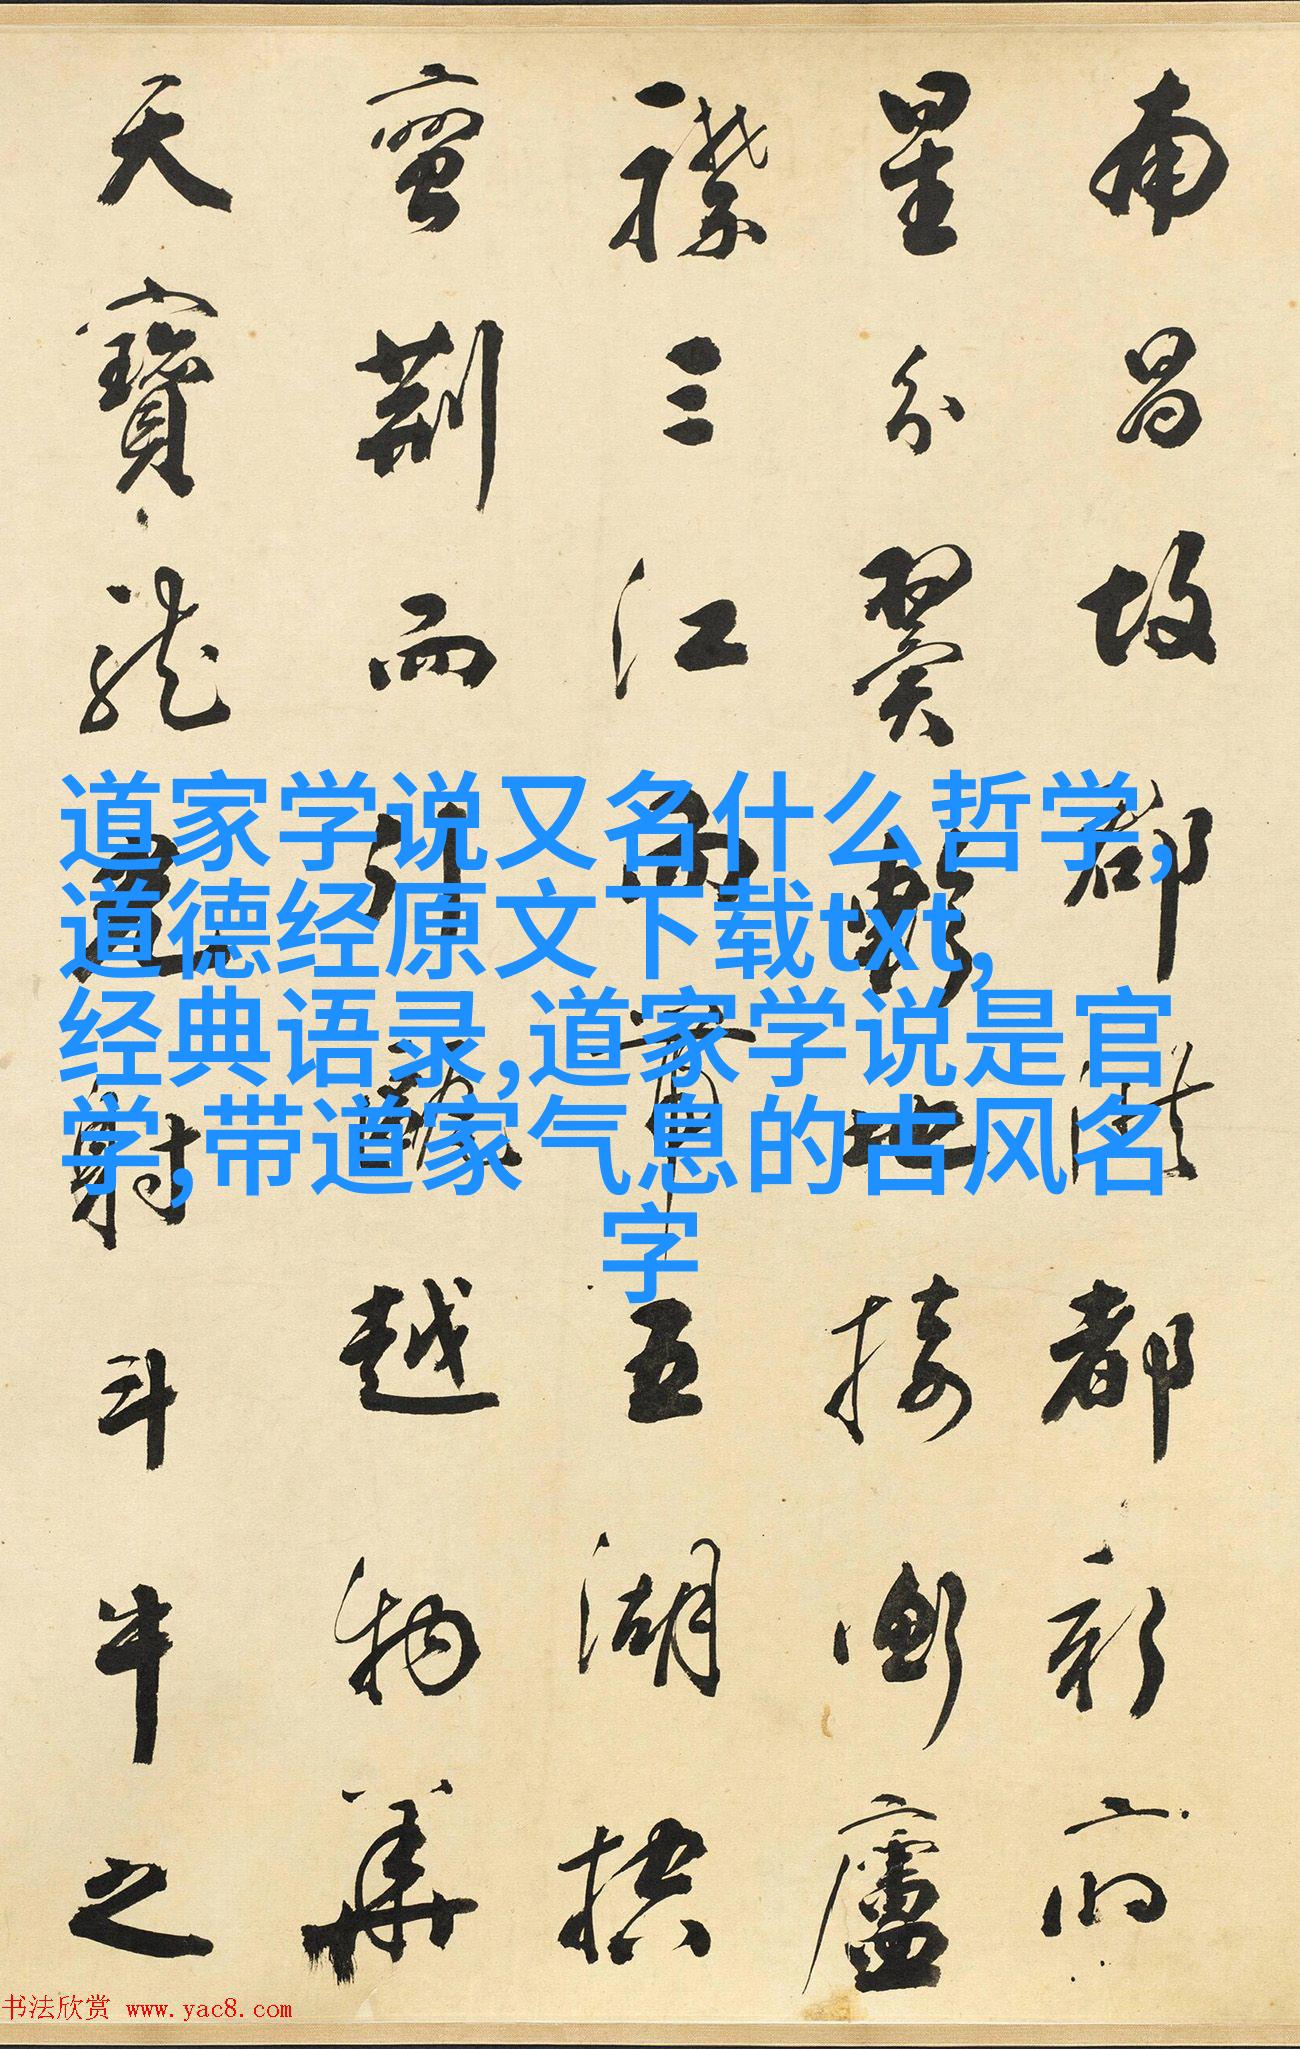 南昌故郡洪都新府
星分翼軫地接衡廬
襟三江而帶五湖控
蠻荊而引甌越物華
天寶龍光射斗牛之
道家学说又名什么哲学,
道德经原文下载txt,
经典语录,道家学说是官
学,带道家气息的古风名
字
书法欣赏 www.yac8.com